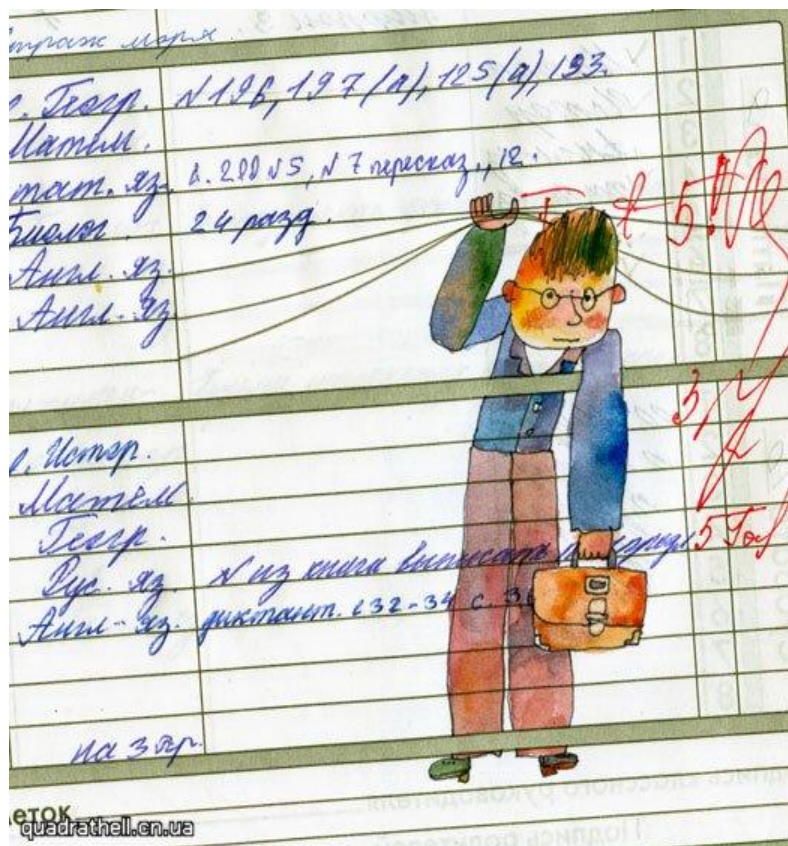 страж моря.
с. Геогр. N 196, 197 (а), 125 (д), 193.
Матем.
тат. яз. с. 200 N5, N 7 пересказ., 12.
Биолог. 24 разд.
5
Англ. яз.
Англ. яз
с. Истор.
3
Матем
Геогр.
Рус. яз. N из книги выписать
5
Англ. яз. диктант. с 32-34 с. 3
на 3 тр.
меток
quadrathell.cn.ua